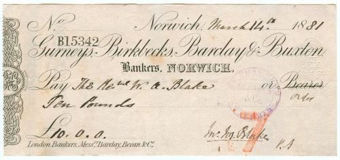 No. Norwich, March 14th 1881
B15342
Gurneys, Birkbecks, Barclay & Buxton
Bankers, NORWICH.
Pay The Revd W. A. Blake or Bearer
order
Ten Pounds
£10.0.0.
London Bankers, Messrs Barclay, Bevan & Co.